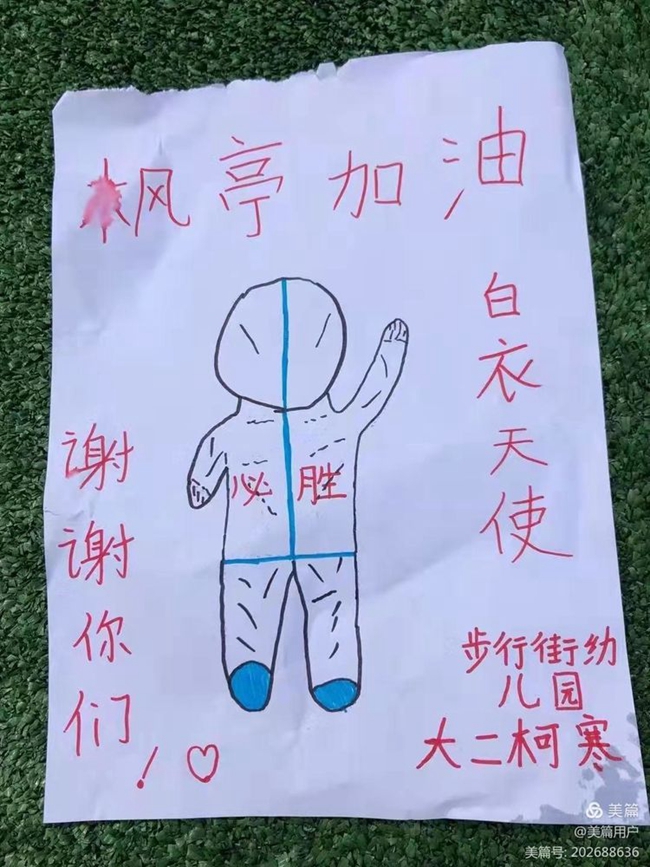 枫亭加油
白衣天使
必胜
谢谢你们！
步行街幼
儿园
大二柯寒
美篇
@美篇用户
美篇号: 202688636